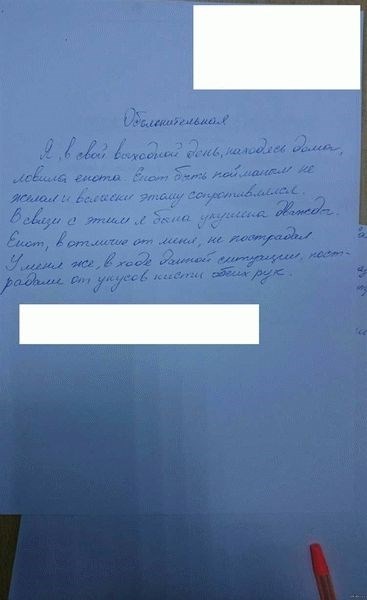 Объяснительная
Я, в свой выходной день, находясь дома,
ловила енота. Енот быть пойманым не
желал и всячески этому сопротивлялся.
В связи с этим я была укушена дважды.
Енот, в отличие от меня, не пострадал.
У меня же, в ходе данной ситуации, пост-
радали от укусов кисти обеих рук.